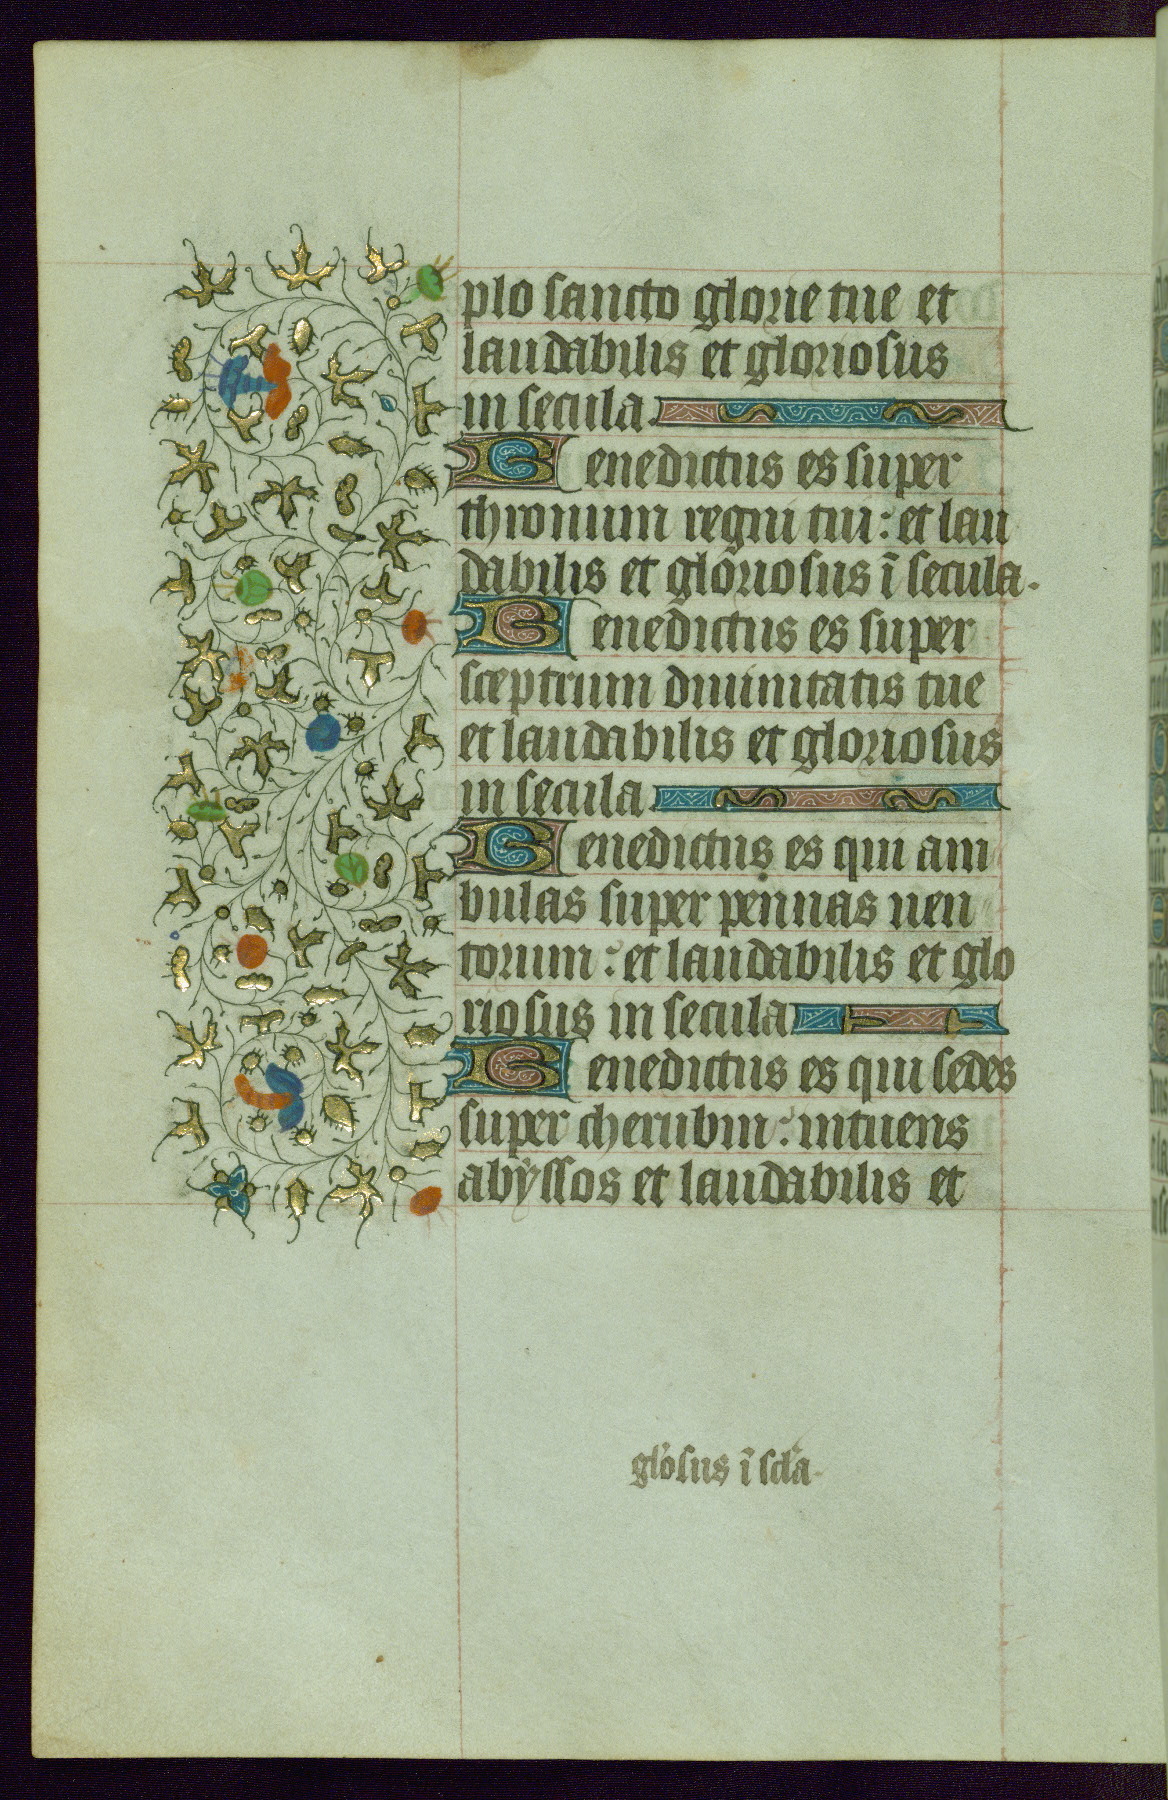 plo sancto glorie tue et
laudabilis et gloriosus
in secula
Benedictus es super
thronum regni tui: et lau
dabilis et gloriosus ī secula.
Benedictus es super
sceptrum diuinitatis tue
et laudabilis et gloriosus
in secula
Benedictus es qui am
bulas super pennas uen
torum: et laudabilis et glo
riosus in secula
Benedictus es qui sedes
super cherubin: intuens
abyssos et laudabilis et
gl'osus ī scl'a.